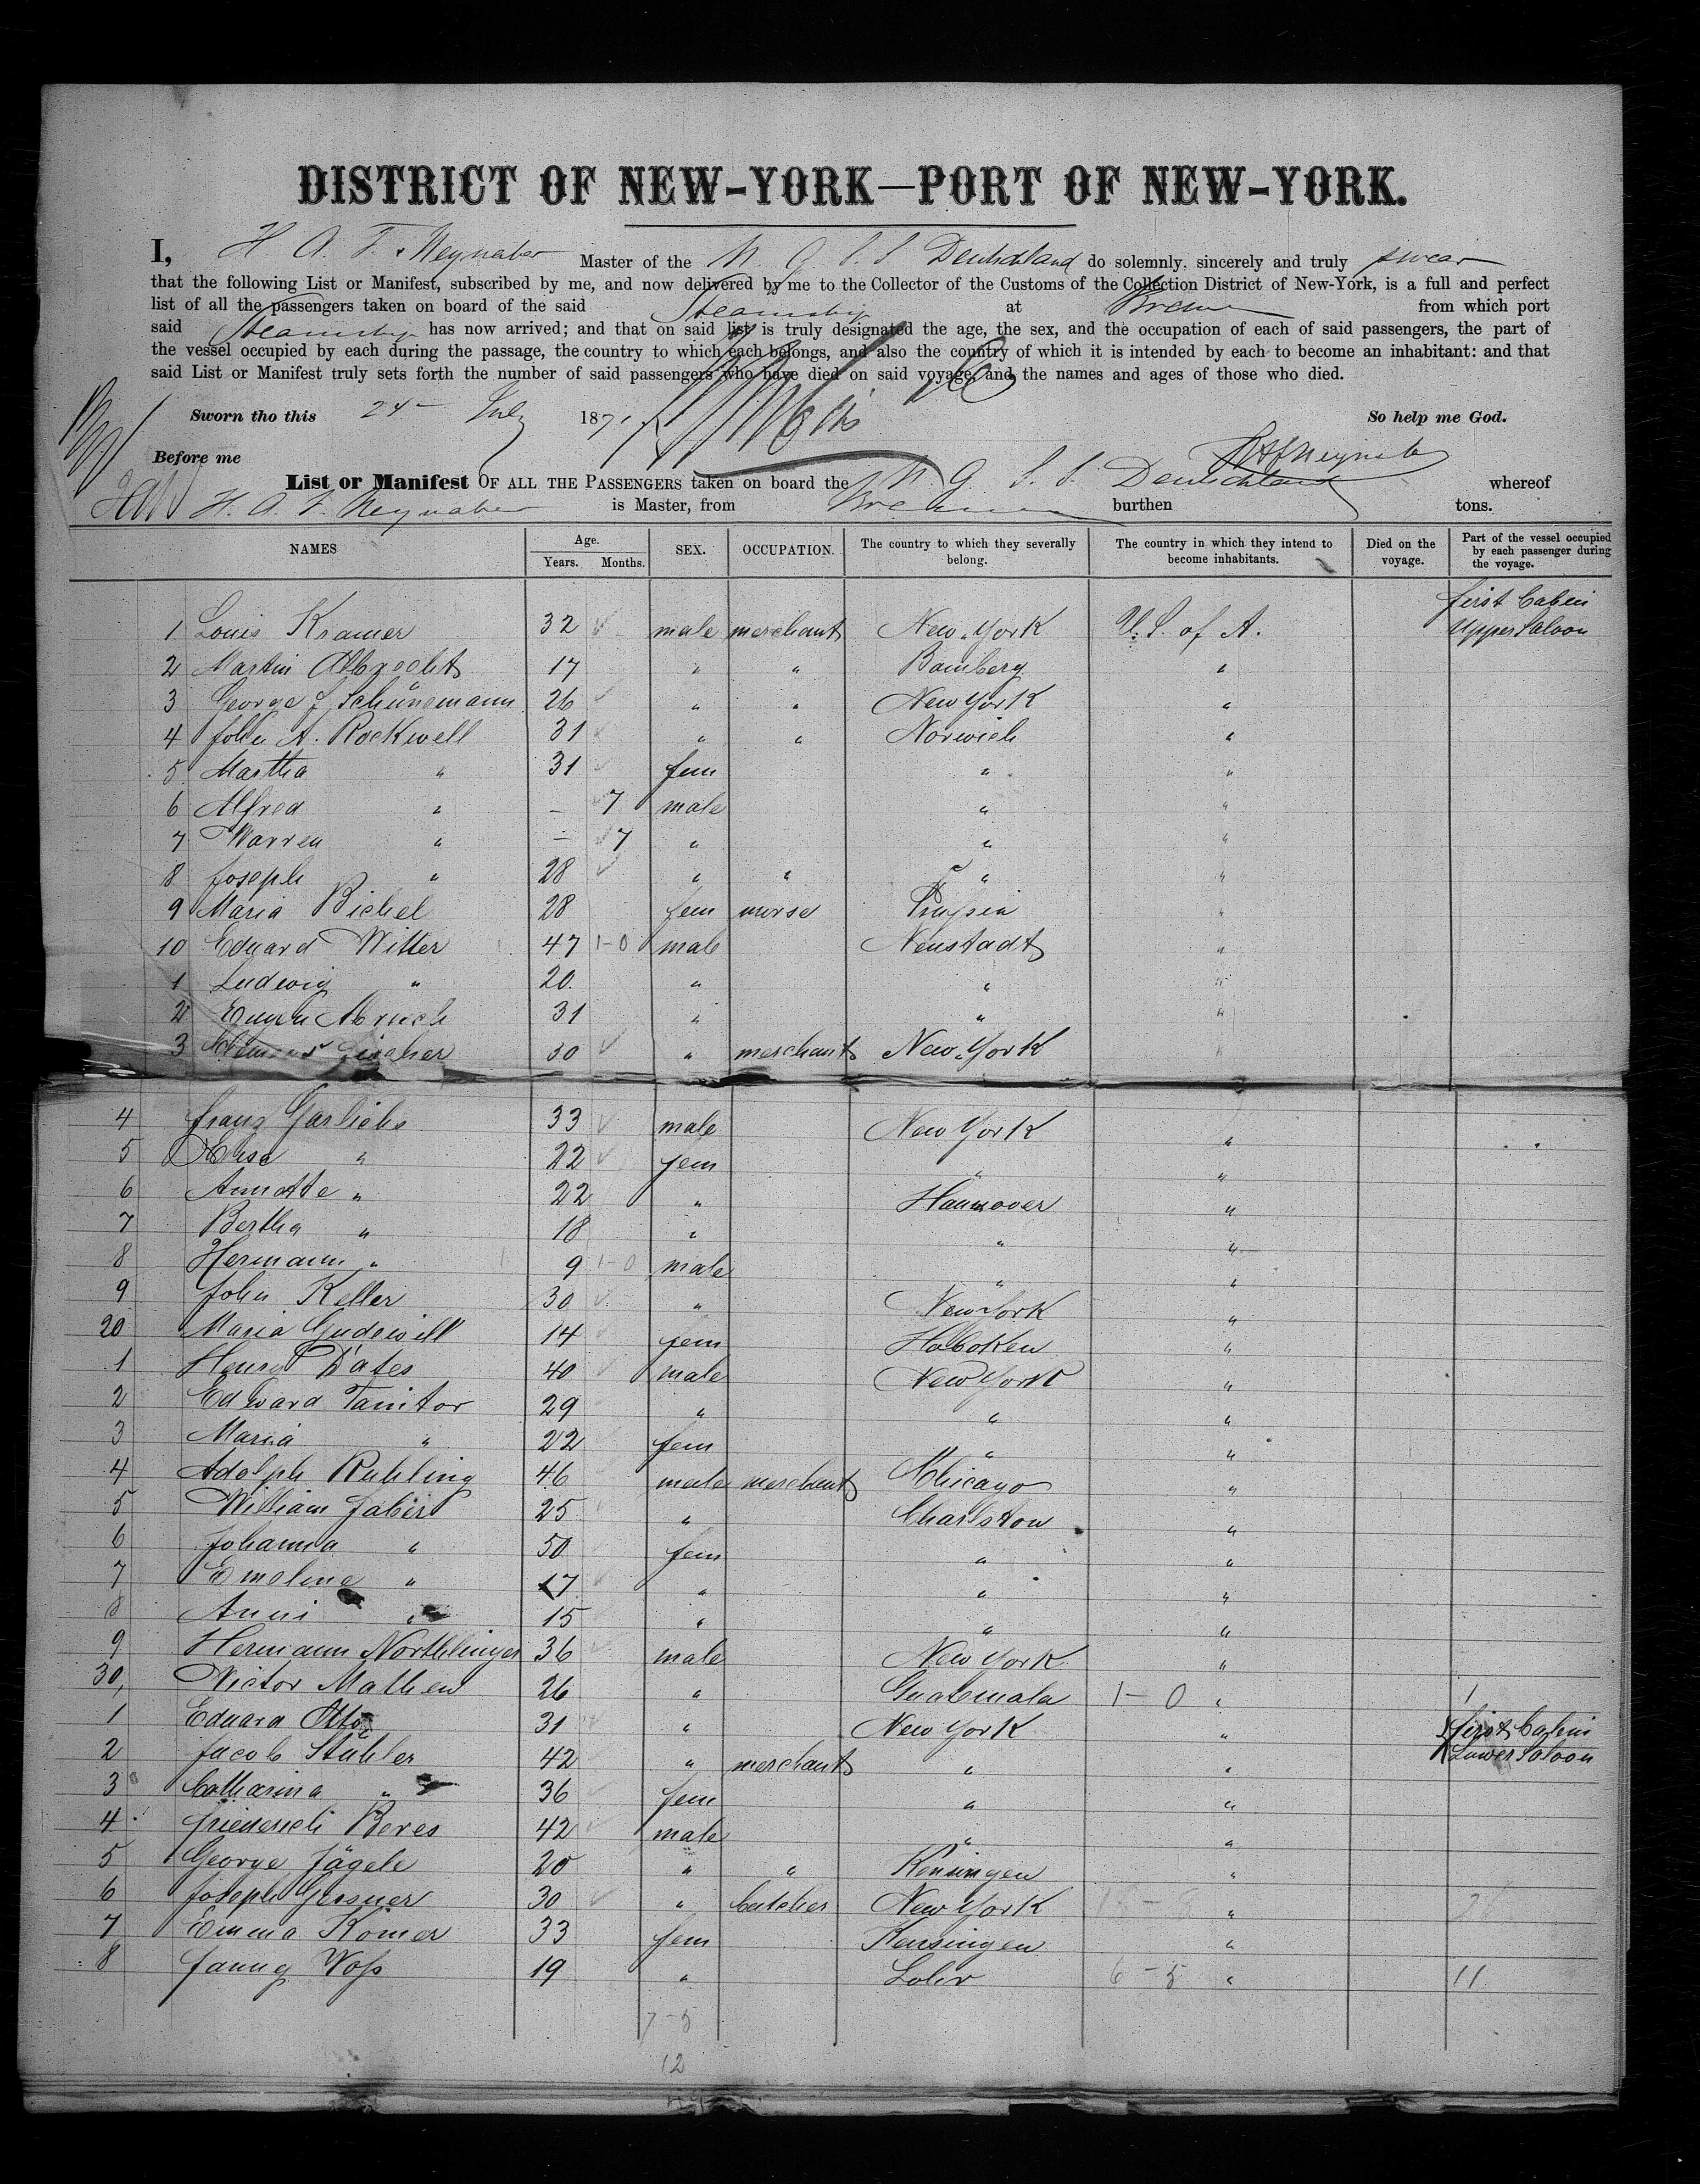 DISTRICT OF NEW-YORK—PORT OF NEW-YORK.
I, H. A. F. Neynaber Master of the N. G. S. S. Deutschland do solemnly, sincerely and truly swear
that the following List or Manifest, subscribed by me, and now delivered by me to the Collector of the Customs of the Collection District of New-York, is a full and perfect
list of all the passengers taken on board of the said Steamship at Bremen from which port
said Steamship has now arrived; and that on said list is truly designated the age, the sex, and the occupation of each of said passengers, the part of
the vessel occupied by each during the passage, the country to which each belongs, and also the country of which it is intended by each to become an inhabitant: and that
said List or Manifest truly sets forth the number of said passengers who have died on said voyage, and the names and ages of those who died.
Sworn tho this 24 July 1871 So help me God.
Before me HAFNeynaber
List or Manifest OF ALL THE PASSENGERS taken on board the N. G. S. S. Deutschland whereof
H. A. F. Neynaber is Master, from Bremen burthen tons.
NAMES Age. Years. Months. SEX. OCCUPATION. The country to which they severally belong. The country in which they intend to become inhabitants. Died on the voyage. Part of the vessel occupied by each passenger during the voyage.
first Cabin
1 Louis Kramer 32 male merchant New-York U. S. of A. Upper Saloon
2 Martin Albrecht 17 " " Bamberg "
3 George J Schünemann 26 " " New York "
4 John A. Rockwell 31 " " Norwich "
5 Martha " 31 fem " "
6 Alfred " — 7 male " "
7 Warren " — 7 " " "
8 Joseph " 28 " " " "
9 Maria Bichel 28 fem nurse Prussia "
10 Eduard Witter 47 1-0 male Neustadt "
1 Ludwig " 20. " " "
2 31 " " "
3 30 " merchant New-York "
4 Franz Garlichs 33 male New York "
5 " 22 fem " "
6 Annatte " 22 " Hannover "
7 Bertha " 18 " " "
8 Hermann " 9 1-0 male " "
9 John Keller 30 " New York "
20 Maria Gudewill 14 fem Hoboken "
1 40 male New York "
2 Edward Tanitor 29 " " "
3 Maria " 22 fem " "
4 Adolph Ruhling 46 male merchant Chicago "
5 William Faber 25 " Charlston "
6 Johanna " 50 fem " "
7 Emeline " 17 " " "
8 Anni " 15 " " "
9 Hermann Northlinger 36 male New York "
30, Victor Mathew 26 " Guatemala 1-0 " 1
1 Eduard Otto 31 " New York " first Cabin
2 Jacob Stühler 42 " merchant " " Lower Saloon
3 Catharina " 36 fem " "
4 Friederich Beres 42 male " "
5 George Jägele 20 " " "
6 Joseph Gessner 30 " butcher New York "
7 Emma Komer 33 fem Kensingen "
8 Fanny Voß 19 " Lohr 6-5 " 11
7-5
12